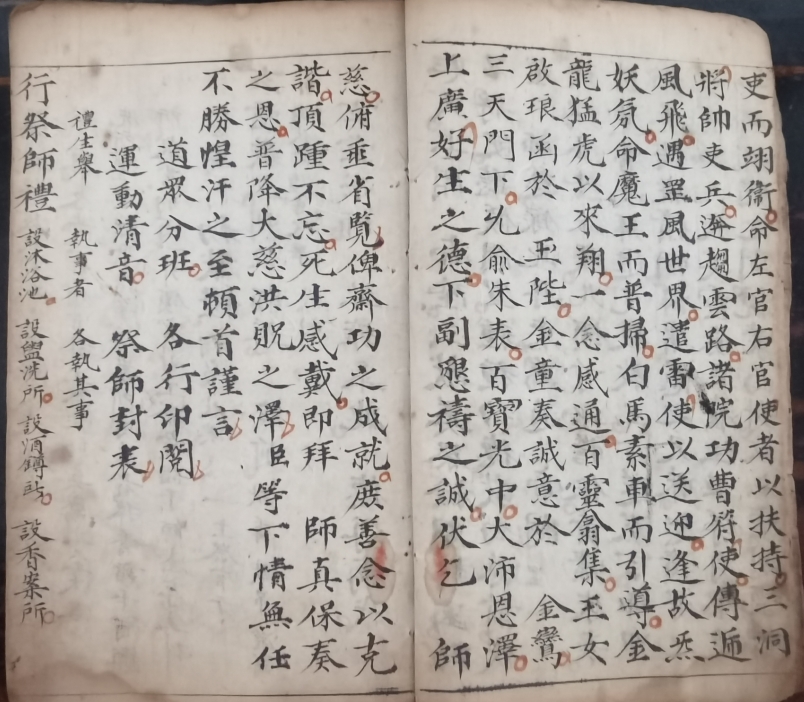 吏而翊衛命左官右官使者以扶持三洞
將帥吏兵遊趨雲路諸院功曹符使傳逓
風飛遇罡風世界遣雷使以送迎逢故炁
妖氛命魔王而普掃白馬素車而引導金
龍猛虎以來翔一念感通百靈翕集玉女
啟琅函於 王陛金童奏誠意於 金鸞
三天門下允俞朱表百寶光中大沛恩澤
上廣好生之德下副懇禱之誠伏乞 師
慈俯垂省覽俾齋功之成就庶善念以克
諧頂踵不忘死生感戴即拜 師真保奏
之恩普降大慈洪貺之澤臣等下情無任
不勝惶汗之至頓首謹言
道眾分班 各行印閱
運動清音 祭師封表
禮生舉 執事者 各執其事
行祭師禮 設沐浴池 設盥洗所 設酒罇所 設香案所